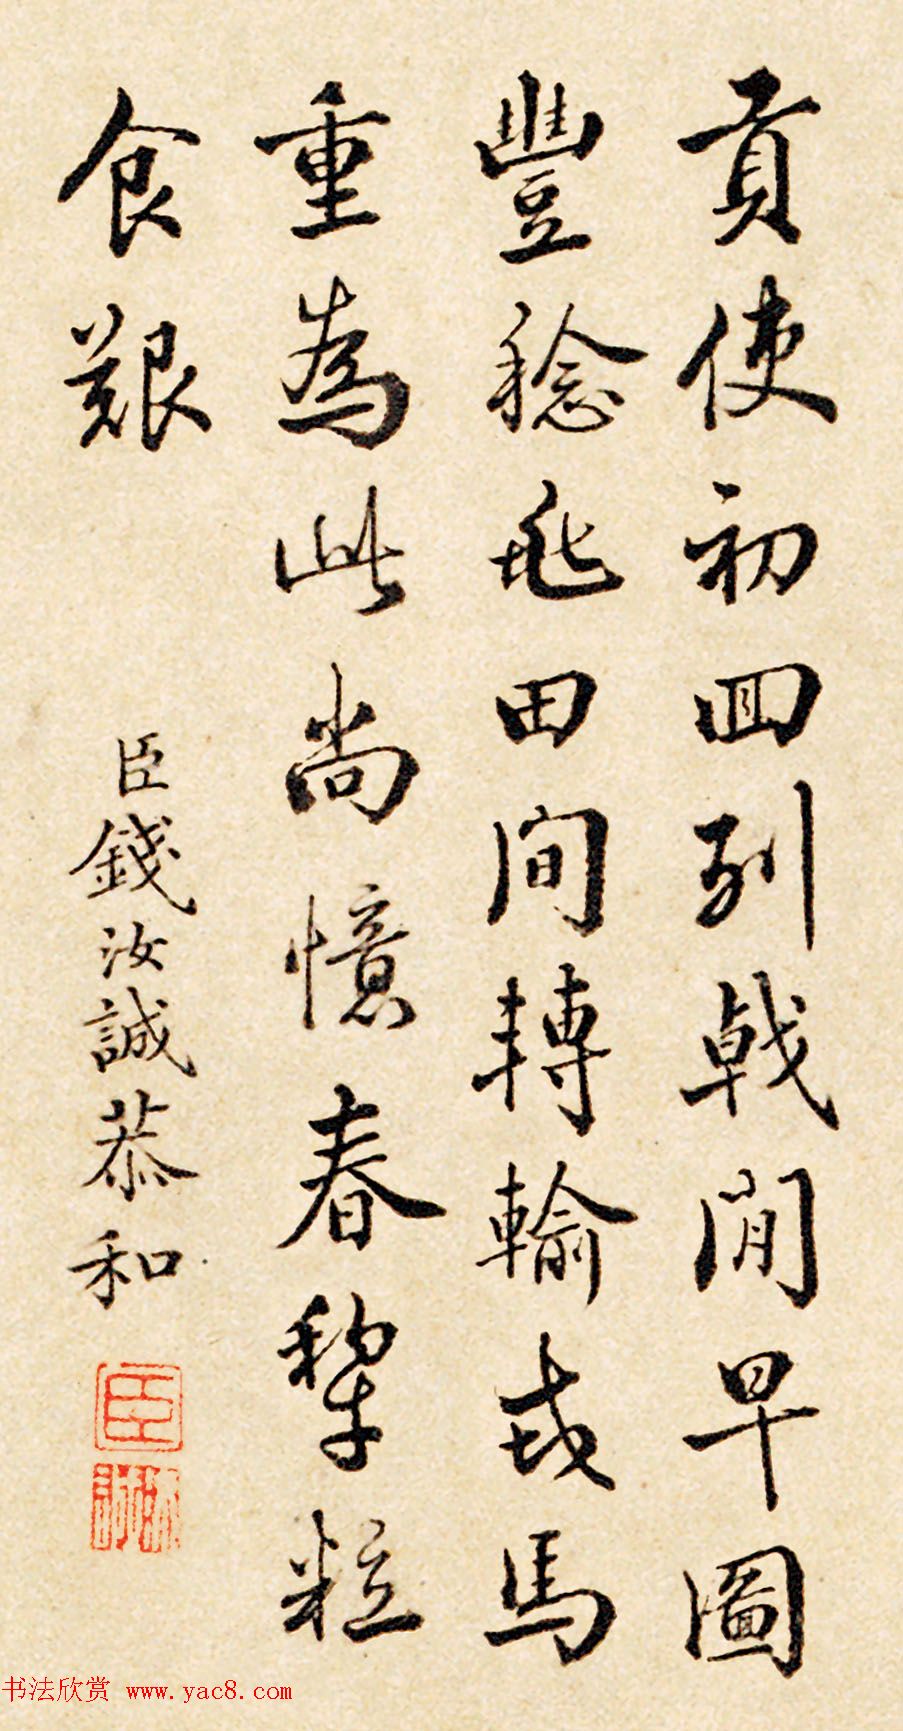 貢使初囬列戟閒早圖
豐稔田間轉輸戎馬
重為此尚憶春犂粒
食艱
臣錢汝誠恭和
臣
书法欣赏 www.yac8.com